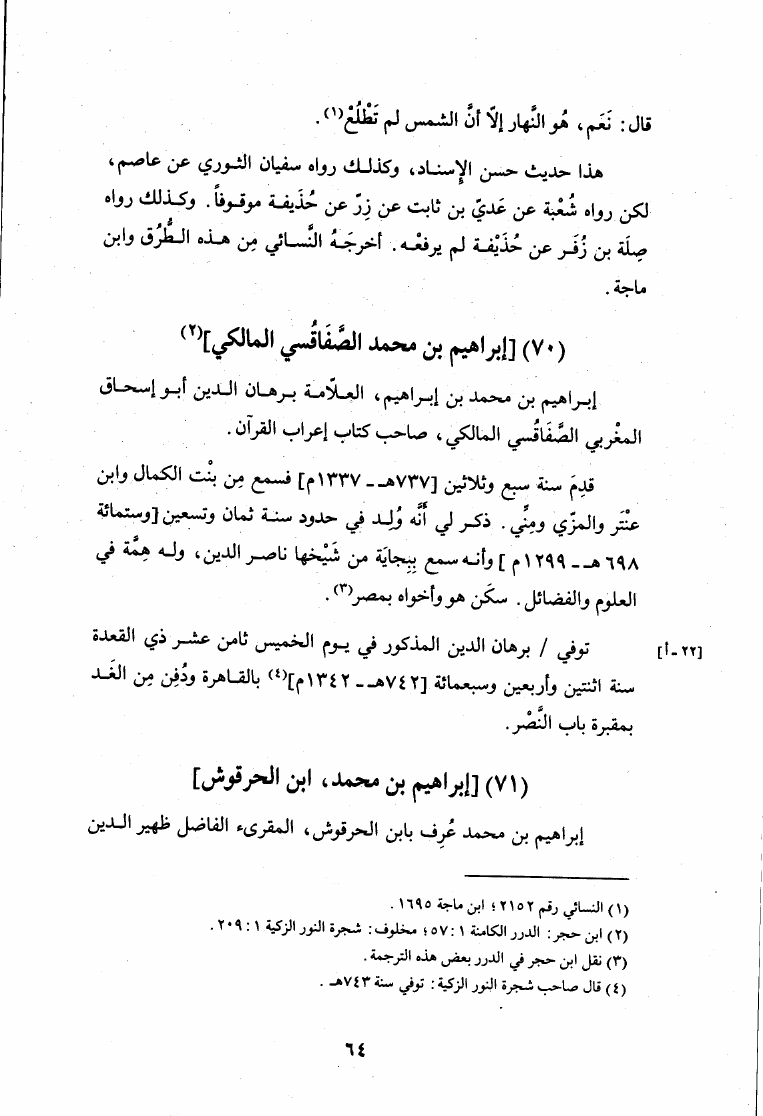 قال: نَعَم، هُو النَّهار إلاّ أنَّ الشمس لم تَطْلُعْ(١).
هذا حديث حسن الإسناد، وكذلك رواه سفيان الثوري عن عاصم،
لكن رواه شُعْبة عن عَديّ بن ثابت عن زِرّ عن حُذَيفة موقوفاً. وكذلك رواه
صِلَة بن زُفَر عن حُذَيْفة لم يرفعْه. أخرجَهُ النَّسائي مِن هذه الطُّرق وابن
ماجة.
(٧٠) [إبراهيم بن محمد الصَّفَاقُسي المالكي](٢)
إبراهيم بن محمد بن إبراهيم، العلاّمة برهان الدين أبو إسحاق
المغْربي الصَّفَاقُسي المالكي، صاحب كتاب إعراب القرآن.
قدِمَ سنة سبع وثلاثين [٧٣٧هـ ـ ١٣٣٧م] فسمع مِن بنْت الكمال وابن
عنْتَر والمزّي ومِنِّي. ذكر لي أنَّه وُلِد في حدود سنة ثمان وتسعين [وستمائة
٦٩٨ هـ ـ ١٢٩٩ م] وأنه سمع بِبِجايَة من شَيْخها ناصر الدين، وله هِمَّة في
العلوم والفضائل. سكَن هو وأخواه بمصر(٣).
[٢٢ - أ] توفي / برهان الدين المذكور في يوم الخميس ثامن عشر ذي القعدة
سنة اثنتين وأربعين وسبعمائة [٧٤٢هـ ـ ١٣٤٢م](٤) بالقاهرة ودُفِن مِن الغَد
بمقبرة باب النَّصْر.
(٧١) [إبراهيم بن محمد، ابن الحرقوش]
إبراهيم بن محمد عُرِف بابن الحرقوش، المقرىء الفاضل ظهير الدين
(١) النسائي رقم ٢١٥٢؛ ابن ماجة ١٦٩٥.
(٢) ابن حجر: الدرر الكامنة ١: ٥٧؛ مخلوف: شجرة النور الزكية ١: ٢٠٩.
(٣) نقل ابن حجر في الدرر بعض هذه الترجمة.
(٤) قال صاحب شجرة النور الزكية: توفي سنة ٧٤٣هـ.
٦٤